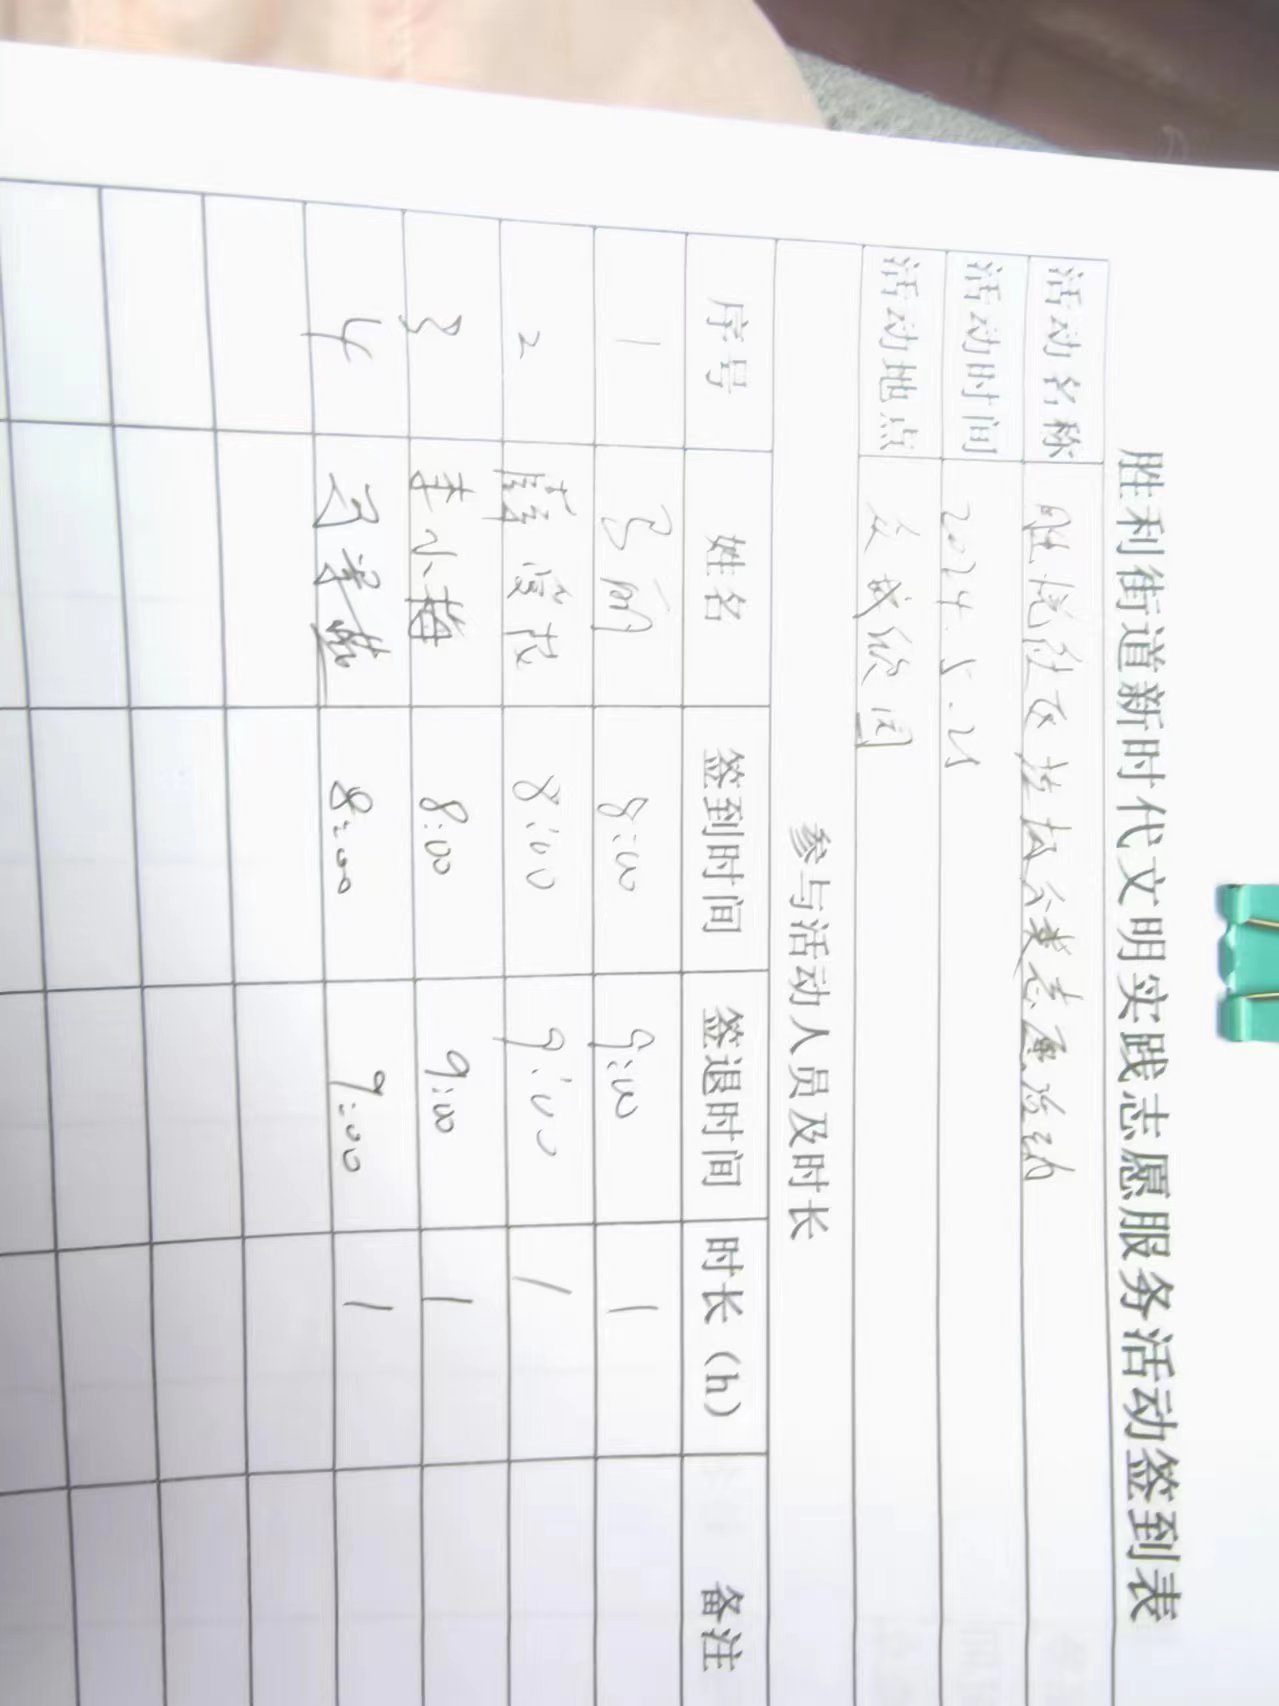 胜利街道新时代文明实践志愿服务活动签到表
活动名称 胜悦社区垃圾分类志愿活动
活动时间 2024.5.21
活动地点 众成欣园
参与活动人员及时长
序号 姓名 签到时间 签退时间 时长（h） 备注
1 8:00 9:00 1
2 8:00 9:00 1
3 李小梅 8:00 9:00 1
4 8:00 9:00 1